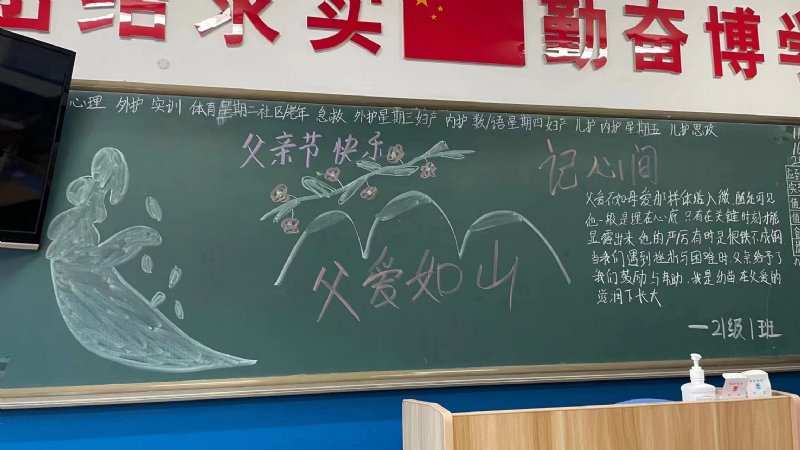 结求实
勤奋博学
心理 外护 实训 体育 星期二 社区 老年 急救 外护 星期三 妇产 内护 数/语 星期四 妇产 儿护 内护 星期五 儿护 思政
父亲节快乐
记心间
父爱如山
父爱不如母爱那样体贴入微,随处可见
他一般是埋在心底 只有在关键时刻才能
显露出来 他的严厉有时是恨铁不成钢
当我们遇到挫折与困难时,父亲给予了
我们鼓励与帮助,我是幼苗在父爱的
滋润下长大
一21级1班